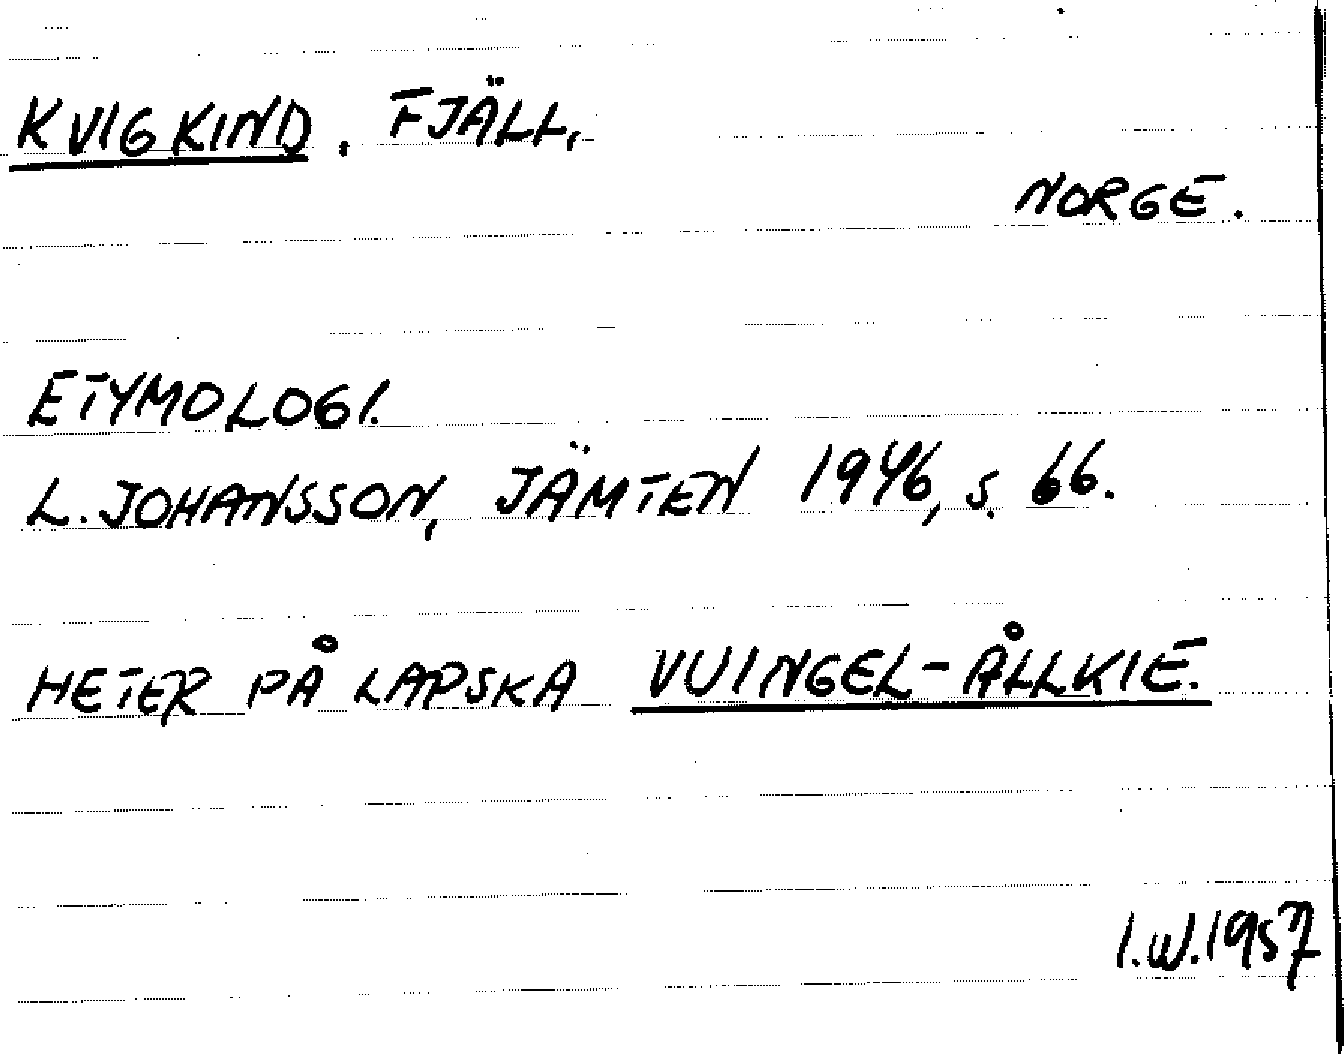 KVIGKIND. FJÄLL,
NORGE.
ETYMOLOGI.
L. JOHANSSON, JÄMTEN 1946, S. 66.
HETER PÅ LAPSKA VUINGEL-ÅLLKIE.
I.W. 1957